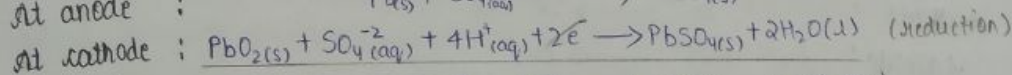 At anode :
At cathode : PbO₂(s) + SO₄⁻²(aq) + 4H⁺(aq) + 2e⁻ ⟶ PbSO₄(s) + 2H₂O(l) (reduction)